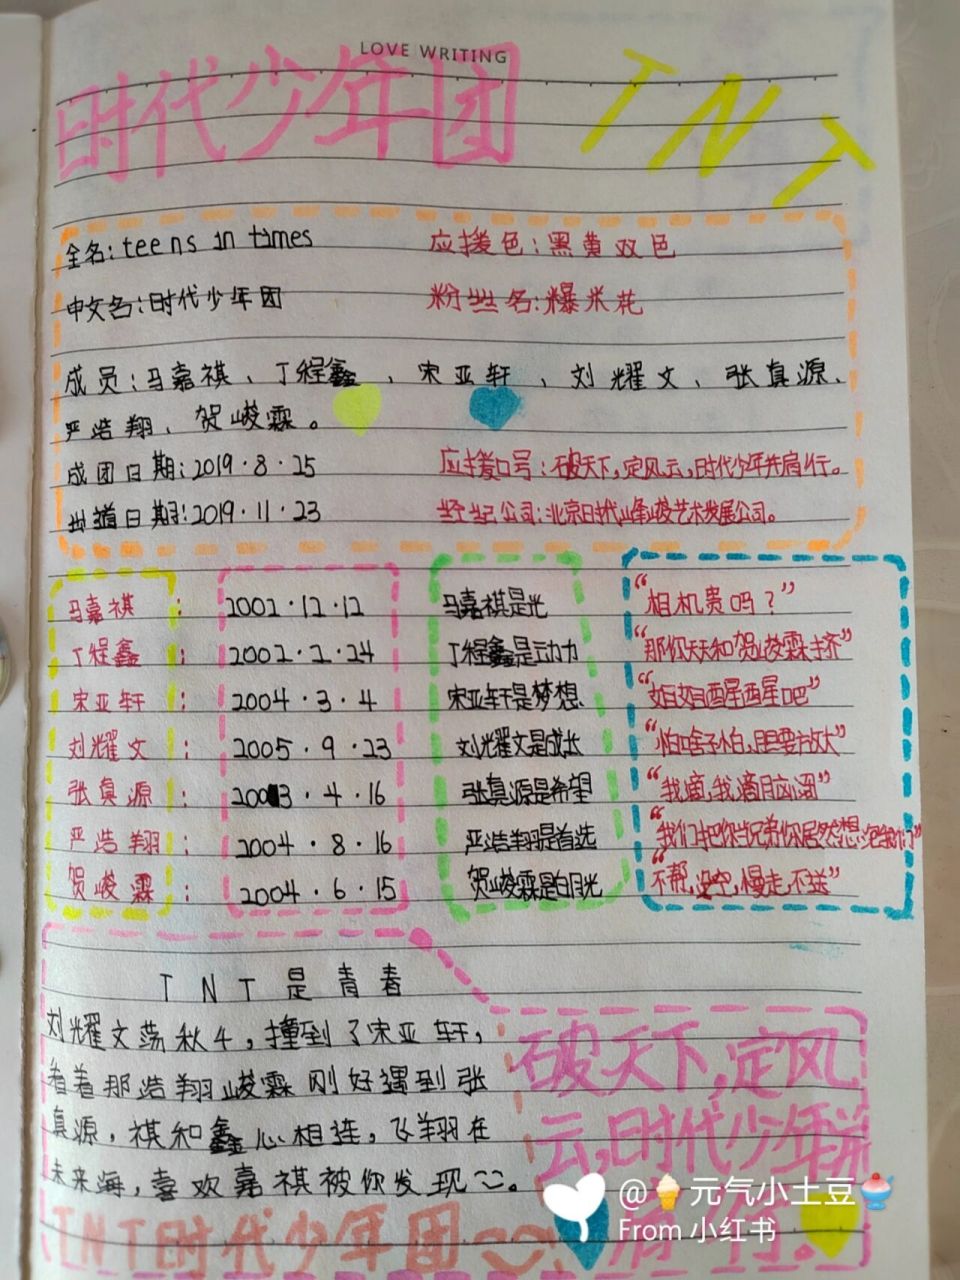 LOVE WRITING
时代少年团 TNT
全名:teens in times 应援色:黑黄双色
中文名:时代少年团 粉丝名:爆米花
成员:马嘉祺、丁程鑫、宋亚轩、刘耀文、张真源、
严浩翔、贺峻霖。
成团日期:2019·8·25 应援口号:破天下,定风云,时代少年并肩行。
出道日期:2019·11·23 经纪公司:北京时代峰峻艺术发展公司。
马嘉祺: 2002·12·12 马嘉祺是光 “相机贵吗?”
丁程鑫: 2002·2·24 丁程鑫是动力 “那你天天和贺峻霖挤”
宋亚轩: 2004·3·4 宋亚轩是梦想 “姐姐醒醒吧”
刘耀文: 2005·9·23 刘耀文是成长 “怕啥子怕,胆要放大”
张真源: 2003·4·16 张真源是希望 “我滴,我滴脑阔”
严浩翔: 2004·8·16 严浩翔是首选 “我们把你当兄弟你居然想泡我们”
贺峻霖: 2004·6·15 贺峻霖是白月光 “不帮,没空,慢走,不送”
TNT是青春
刘耀文荡秋千,撞到了宋亚轩,
看着那浩翔峻霖刚好遇到张
真源,祺和鑫心相连,飞翔在
未来海,喜欢嘉祺被你发现。
破天下,定风
云,时代少年并
肩行。
TNT时代少年团
@元气小土豆
From 小红书